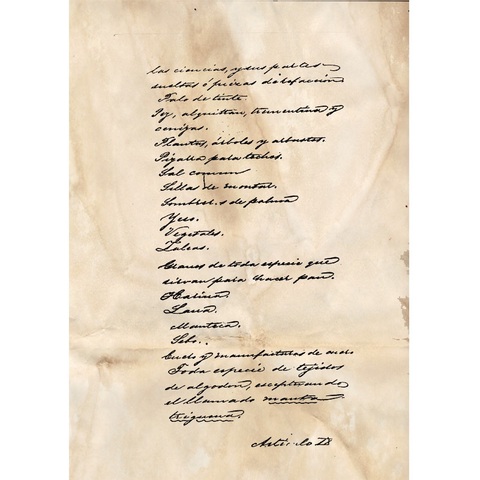 las ciencias, y sus partes
sueltas ó piezas de refacción
Palo de tinte
Pez, alquitran, trementina y
cenizas.
Plantas, árboles y arbustos.
Pizarra para techos.
Sal comun
Sillas de montar.
Sombreros de palma
Yeso.
Vegetales.
Zaleas.
Granos de toda especie que
sirvan para hacer pan.
Harina.
Lana.
Manteca.
Sebo.
Cuero y manufacturas de cuero
Toda especie de tejidos
de algodon, exceptuando
el llamado manta
trigueña.
Artículo IX